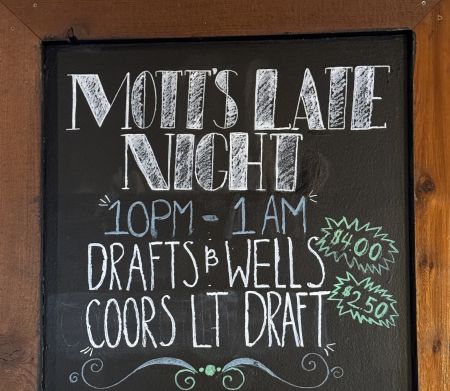 MOTT'S LATE
NIGHT
10PM - 1AM
DRAFTS & WELLS $4.00
COORS LT DRAFT $2.50